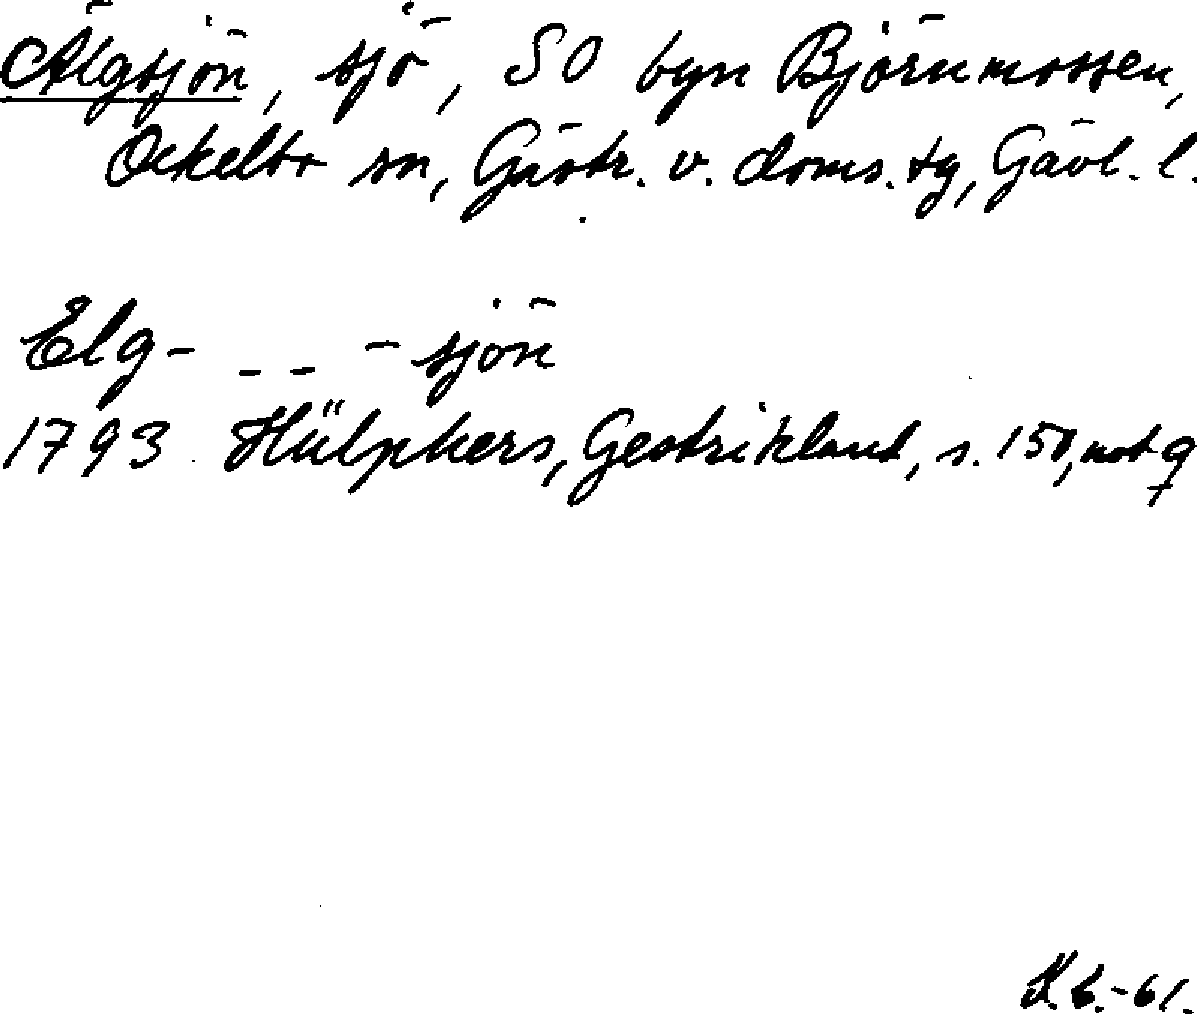 Älgsjön, sjö, SO byn Björnmossen,
Ockelbo sn, Gästr. v. doms. tg, Gävl. l.
Elg- - - -sjön
1793 Hülpkers, Gestrikland, s. 150, not q
K.b.-61.